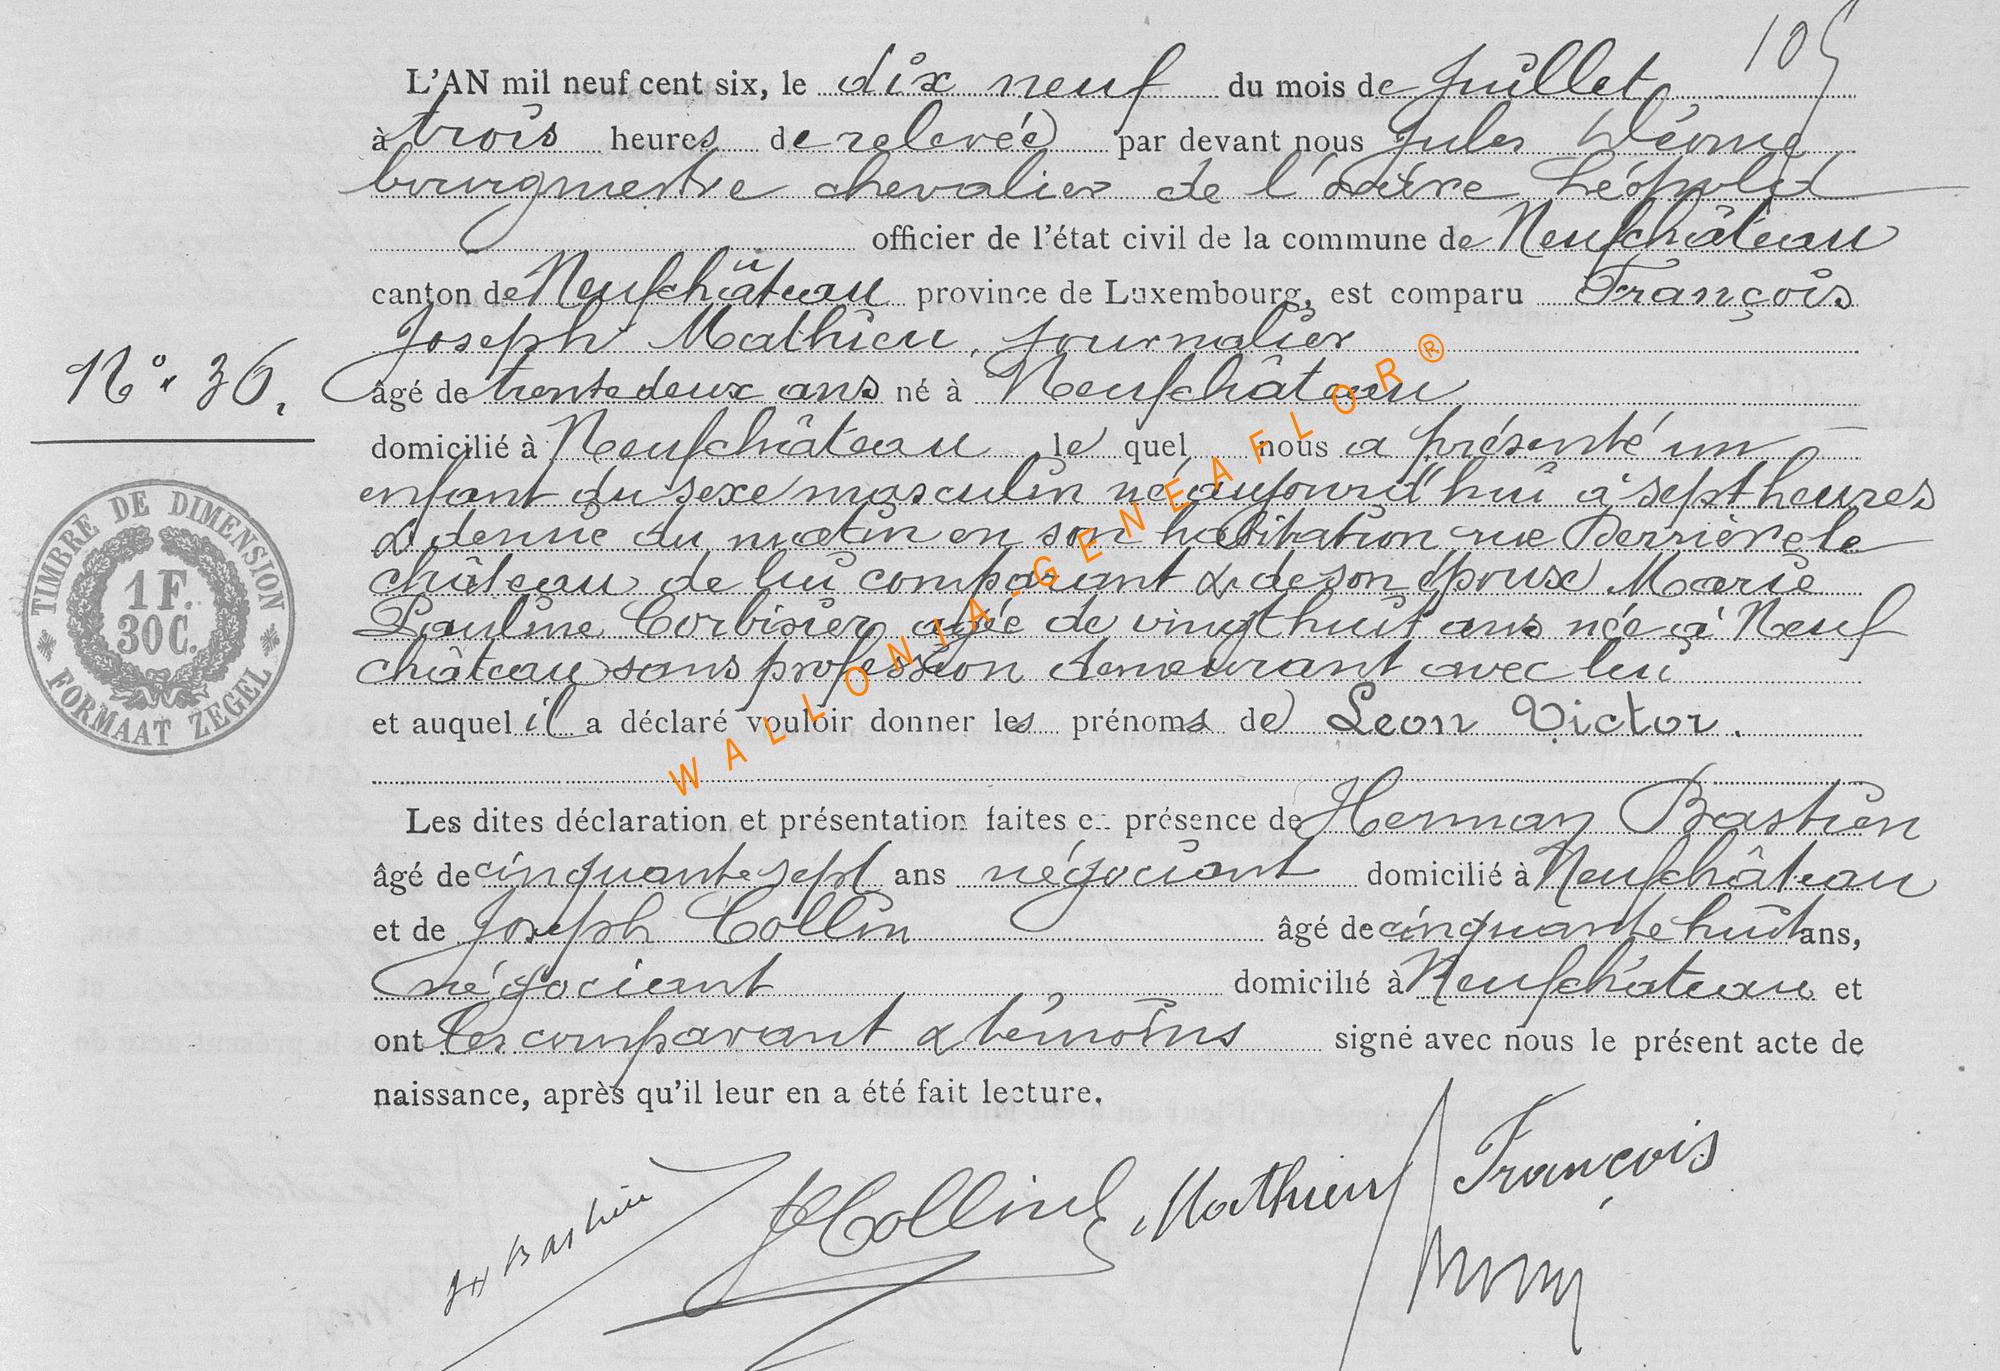 105
L'AN mil neuf cent six, le dix neuf du mois de Juillet
à trois heures de relevée par devant nous Jules
bourgmestre chevalier de l'ordre Léopold
officier de l'état civil de la commune de Neufchâteau
canton de Neufchâteau province de Luxembourg, est comparu François
Joseph Mathieu, journalier
N° 36.
âgé de trente deux ans né à Neufchâteau
domicilié à Neufchâteau le quel nous a présenté un
enfant du sexe masculin né aujourd'hui à sept heures
& demie du matin en son habitation rue Derrière le
château de lui comparant & de son épouse Marie
Pauline Corbisier agée de vingt huit ans née à Neuf
château sans profession demeurant avec lui
et auquel il a déclaré vouloir donner les prénoms de Leon Victor.
Les dites déclaration et présentation faites en présence de Herman Bastien
âgé de cinquante sept ans négociant domicilié à Neufchâteau
et de Joseph Collin âgé de cinquante huit ans,
négociant domicilié à Neufchâteau et
ont les comparant & témoins signé avec nous le présent acte de
naissance, après qu'il leur en a été fait lecture.
TIMBRE DE DIMENSION
1 F.
30 C.
FORMAAT ZEGEL
WALLONIA-GENEAFLOR®
Bastien
JCollin
Mathieu François